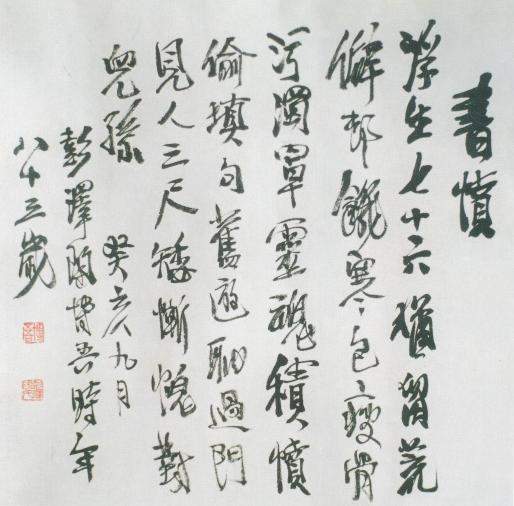 書憤
浮生七十六猶留荒
僻邨饑寒包瘦骨
污濁罩靈魂積憤
偷填句舊遊恥過門
見人三尺矮慚愧對
兒孫 癸亥九月
彭澤陶博吾時年
八十三歲